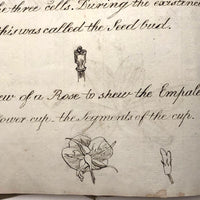 three cells. During the existence
this was called the Seed bud.
ew of a Rose to shew the Empale
lower cup. the segments of the cup.